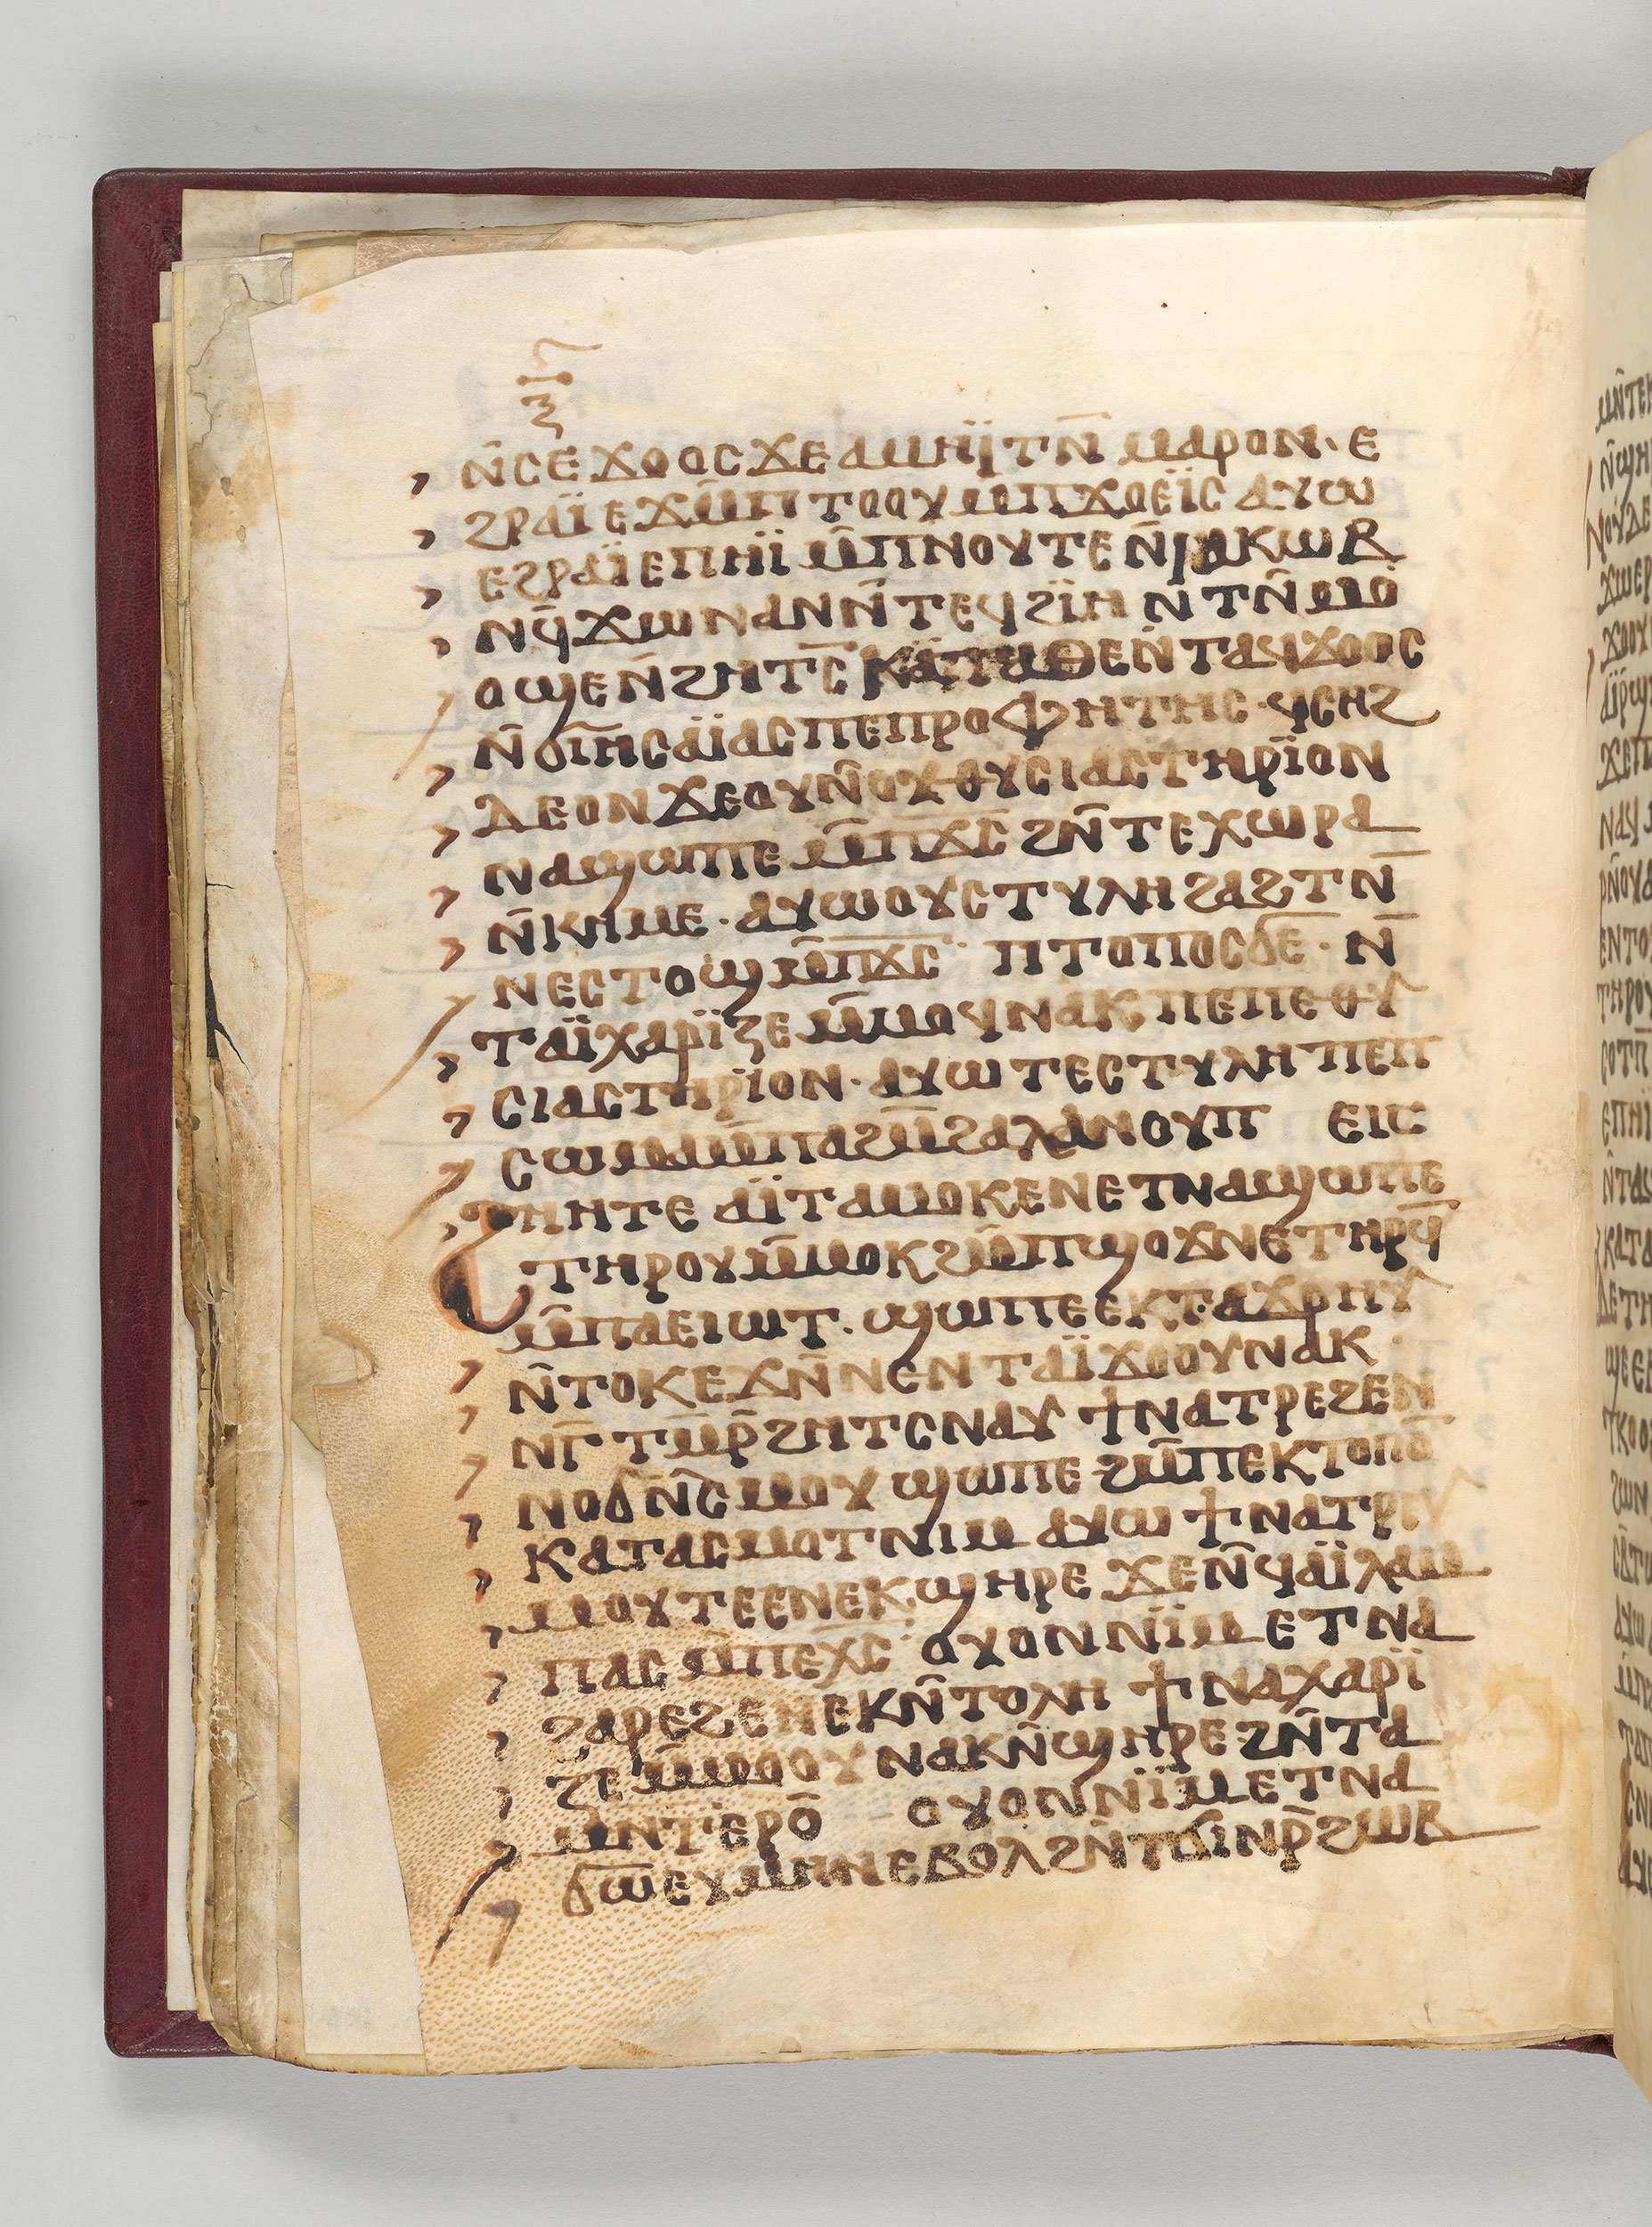 ⲝ
ⲛ̄ⲥⲉϫⲟⲟⲥϫⲉⲁⲙⲏⲓ̈ⲧⲛ̄ ⲙⲁⲣⲟⲛ· ⲉ
ϩⲣⲁⲓ̈ⲉϫⲙ̄ⲡⲧⲟⲟⲩⲙⲡϫⲟⲉⲓ̈ⲥ ⲁⲩⲱ
ⲉϩⲣⲁⲓ̈ⲉⲡⲏⲓ̈ ⲙ̄ⲡⲛⲟⲩⲧⲉ ⲛ̄ⲓ̈ⲁⲕⲱⲃ
ⲛϥ̄ϫⲱⲛⲁⲛⲛ̄ⲧⲉϥϩⲓ̈ⲏ ⲛⲧⲛ̄ⲙⲟ
ⲟϣⲉⲛ̄ϩⲏⲧⲥ̄ ⲕⲁⲧⲁⲑⲉⲛ̄ⲧⲁϥϫⲟⲟⲥ
ⲛ̄ϭⲓⲏ̄ⲥⲁⲓ̈ⲁⲥⲡⲉⲡⲣⲟⲫⲏⲧⲏⲥ· ϥⲥⲏϩ
ⲇⲉⲟⲛϫⲉⲟⲩⲛ̄ⲟⲩⲑⲩⲥⲓⲁⲥⲧⲏⲣⲓ̈ⲟⲛ
ⲛⲁϣⲱⲡⲉ ⲙ̄ⲡϫ̄ⲥ̄ ϩⲛ̄ⲧⲉⲭⲱⲣⲁ
ⲛ̄ⲕⲏⲙⲉ· ⲁⲩⲱⲟⲩⲥⲧⲩⲗⲏ ϩⲁϩⲧⲛ̄
ⲛⲉⲥⲧⲟϣⲙ̄ⲡϫ̄ⲥ̄· ⲡⲧⲟⲡⲟⲥⲇⲉ· ⲛ̄
ⲧⲁⲓ̈ⲭⲁⲣⲓ̈ⲍⲉ ⲙ̄ⲙⲟϥⲛⲁⲕ ⲡⲉⲡⲉⲑⲩ
ⲥⲓⲁⲥⲧⲏⲣⲓ̈ⲟⲛ· ⲁⲩⲱ ⲧⲉⲥⲧⲩⲗⲏ ⲡⲉⲡ
ⲥⲱⲙⲁⲙ̄ⲡⲁϩⲙ̄ϩⲁⲗⲁⲛⲟⲩⲡ ⲉⲓⲥ
ϩⲏⲏⲧⲉ ⲁⲓ̈ⲧⲁⲙⲟⲕⲉⲛⲉⲧⲛⲁϣⲱⲡⲉ
ⲧⲏⲣⲟⲩⲙ̄ⲙⲟⲕϩⲙ̄ⲡϣⲟϫⲛⲉⲧⲏⲣϥ̄
ⲙ̄ⲡⲁⲉⲓⲱⲧ· ϣⲱⲡⲉ ⲉⲕⲧⲁϫⲣⲏⲩ
ⲛ̄ⲧⲟⲕⲉϫⲛ̄ⲛⲉⲛⲧⲁⲓ̈ϫⲟⲟⲩⲛⲁⲕ
ⲛⲅ̄ⲧⲙ̄ⲣ̄ϩⲏⲧⲥⲛⲁⲩ ϯⲛⲁⲧⲣⲉϩⲉⲛ
ⲛⲟϭⲛ̄ⲥⲙⲟⲩ ϣⲱⲡⲉ ϩⲙ̄ⲡⲉⲕⲧⲟⲡⲟ̄
ⲕⲁⲧⲁⲥⲙⲟⲧⲛⲓⲙ ⲁⲩⲱ ϯⲛⲁⲧⲣⲉⲩ
ⲙⲟⲩⲧⲉⲉⲛⲉⲕϣⲏⲣⲉ ϫⲉⲛ̄ϥⲁⲓ̈ⲗⲁⲙ
ⲡⲁⲥ ⲙ̄ⲡⲉⲭ̄ⲥ̄· ⲟⲩⲟⲛⲛⲓ̈ⲙ ⲉⲧⲛⲁ
ϩⲁⲣⲉϩⲉⲛⲉⲕⲛ̄ⲧⲟⲗⲏ ϯⲛⲁⲭⲁⲣⲓ̈
ⲍⲉ ⲙ̄ⲙⲟⲟⲩ ⲛⲁⲕⲛ̄ϣⲏⲣⲉ ϩⲛ̄ⲧⲁ
ⲙⲛⲧⲉⲣⲟ̄ ⲟⲩⲟⲛⲛⲓ̈ⲙ ⲉⲧⲛⲁ
ϭⲱⲉⲩⲙⲏⲛⲉⲃⲟⲗ ϩⲛ̄ⲧϭⲓⲛⲣ̄ϩⲱⲃ